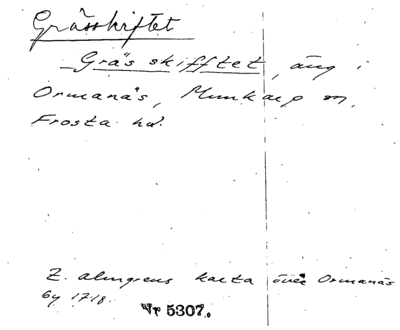 Grässkiftet
Gräs skifftet, äng i
Ormanäs, Munkarp sn,
Frosta hd.
Z. Almgrens karta över Ormanäs
by 1718.
Nr 5307.